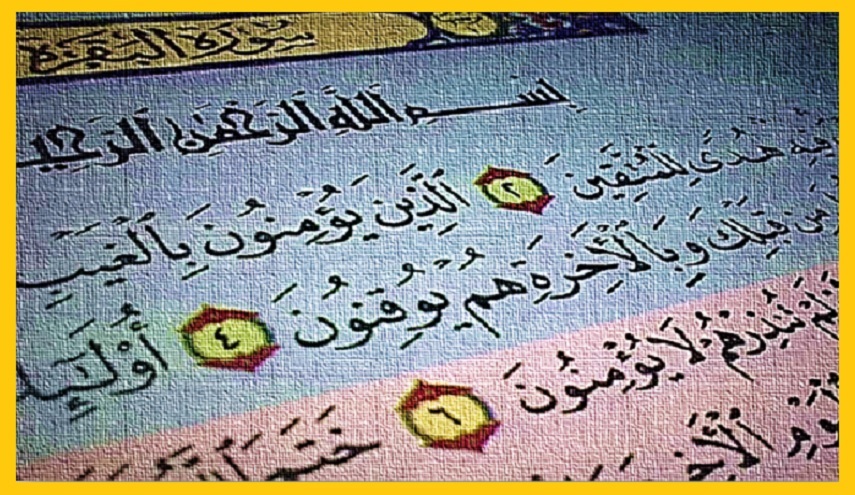 سورة البقرة
بِسْمِ اللَّهِ الرَّحْمَٰنِ الرَّحِي
فِيهِ هُدًى لِّلْمُتَّقِينَ ٢ الَّذِينَ يُؤْمِنُونَ بِالْغَيْبِ
مِن قَبْلِكَ وَبِالْآخِرَةِ هُمْ يُوقِنُونَ ٤ أُولَٰئِكَ
لَمْ تُنذِرْهُمْ لَا يُؤْمِنُونَ ٦ خَتَمَ اللَّهُ